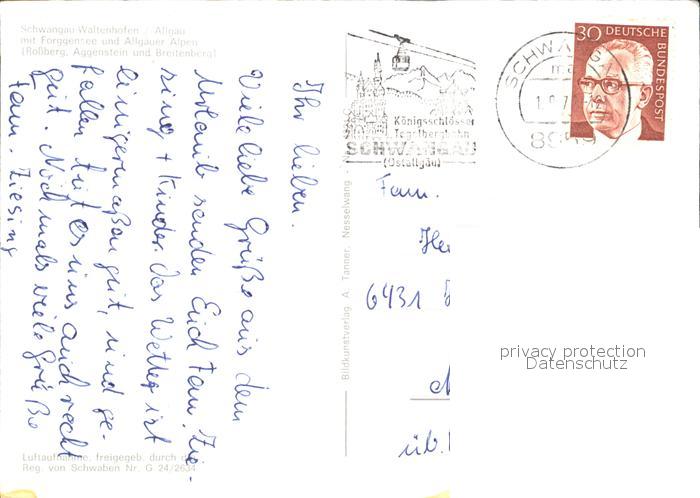 Schwangau-Waltenhofen / Allgäu
mit Forggensee und Allgäuer Alpen
(Roßberg, Aggenstein und Breitenberg)
Ihr Lieben.
Viele liebe Grüße aus dem
Urlaub senden Euch Fam. Zie-
sing + Kinder. Das Wetter ist
einigermaßen gut, sind ge-
fallen tut es uns auch recht
gut. Nochmals viele Grüße
Fam. Ziesing
Luftaufnahme, freigegeb. durch d
Reg. von Schwaben Nr. G 24/2634
Bildkunstverlag A. Tanner, Nesselwang
Königsschlösser
Tegelbergbahn
SCHWANGAU
(Ostallgäu)
SCHWANGAU
8959
30 DEUTSCHE
BUNDESPOST
Fam.
He
6431
üb.
privacy protection
Datenschutz